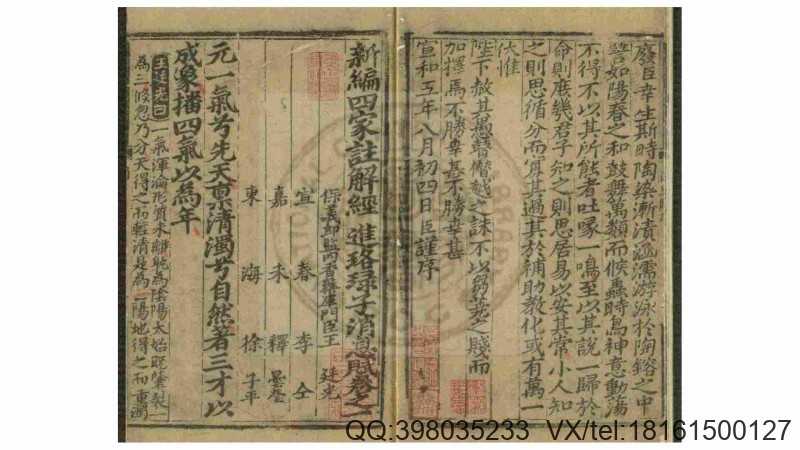 廢臣幸生斯時陶染漸漬涵濡游泳於陶鎔之中
譬如陽春之和鼓舞萬類而候蟲時鳥神意動蕩
不得不以其所能者吐喙一鳴至以其說一歸於
命則庶幾君子知之則思居易以安其常小人知
之則思循分而寡其過其於補助教化或有萬一
伏惟
陛下赦其愚瞽僭越之誅不以芻蕘之賤而
加擇焉不勝幸甚不勝幸甚
宣和五年八月初四日臣謹序
新編四家註解經進珞琭子消息賦卷之一
保義郎監內香藥庫門臣王 廷光
宜春 李 仝
嘉禾 釋 曇瑩
東海 徐 子平
元一氣兮先天稟清濁兮自然著三才以
成象播四氣以為年
王廷光曰一氣渾淪形質未離孰為陰陽太始既肇裂
為三倏忽乃分天得之而輕清是為一陽地得之而重濁
QQ:398035233 VX/tel:18161500127